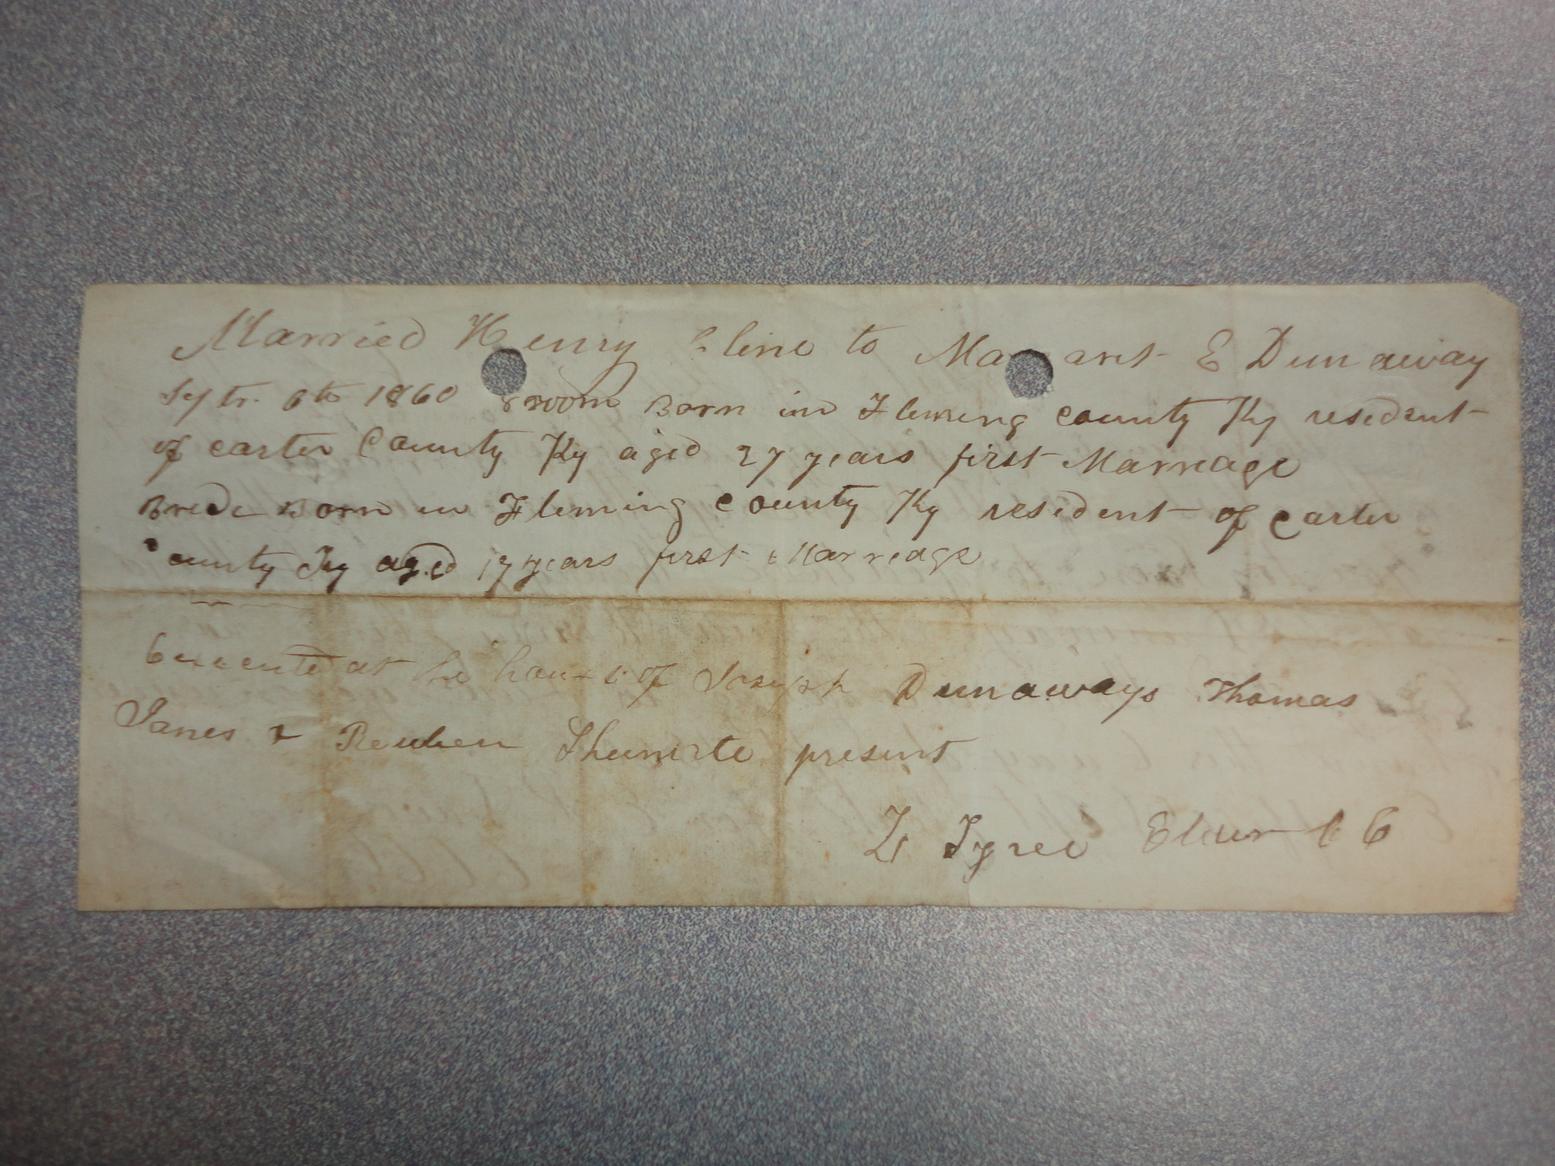 Married Henry Cline to Ma ant E Dunaway
Septr. 6th 1860 Groom Born in Fleming county Ky resident
of carter County Ky aged 27 years first Marreage
Brede Born in Fleming county Ky resident of carter
ounty Ky aged 17 years first Marreage
at he house of Joseph Dunaways Thomas
Janes & Reuben present
Z Tyree Elder C C